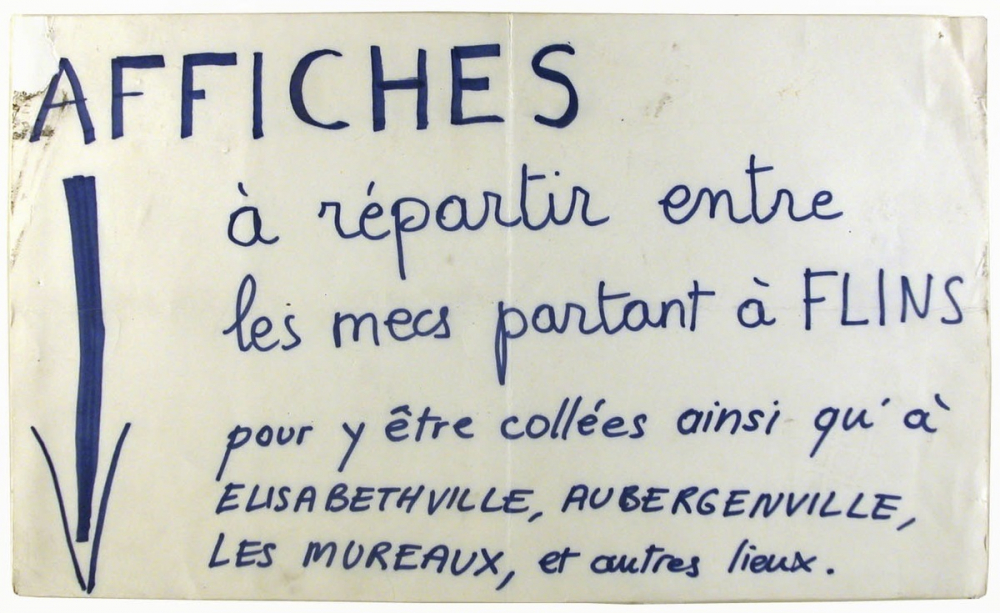 AFFICHES
à répartir entre
les mecs partant à FLINS
pour y être collées ainsi qu'à
ELISABETHVILLE, AUBERGENVILLE,
LES MUREAUX, et autres lieux.